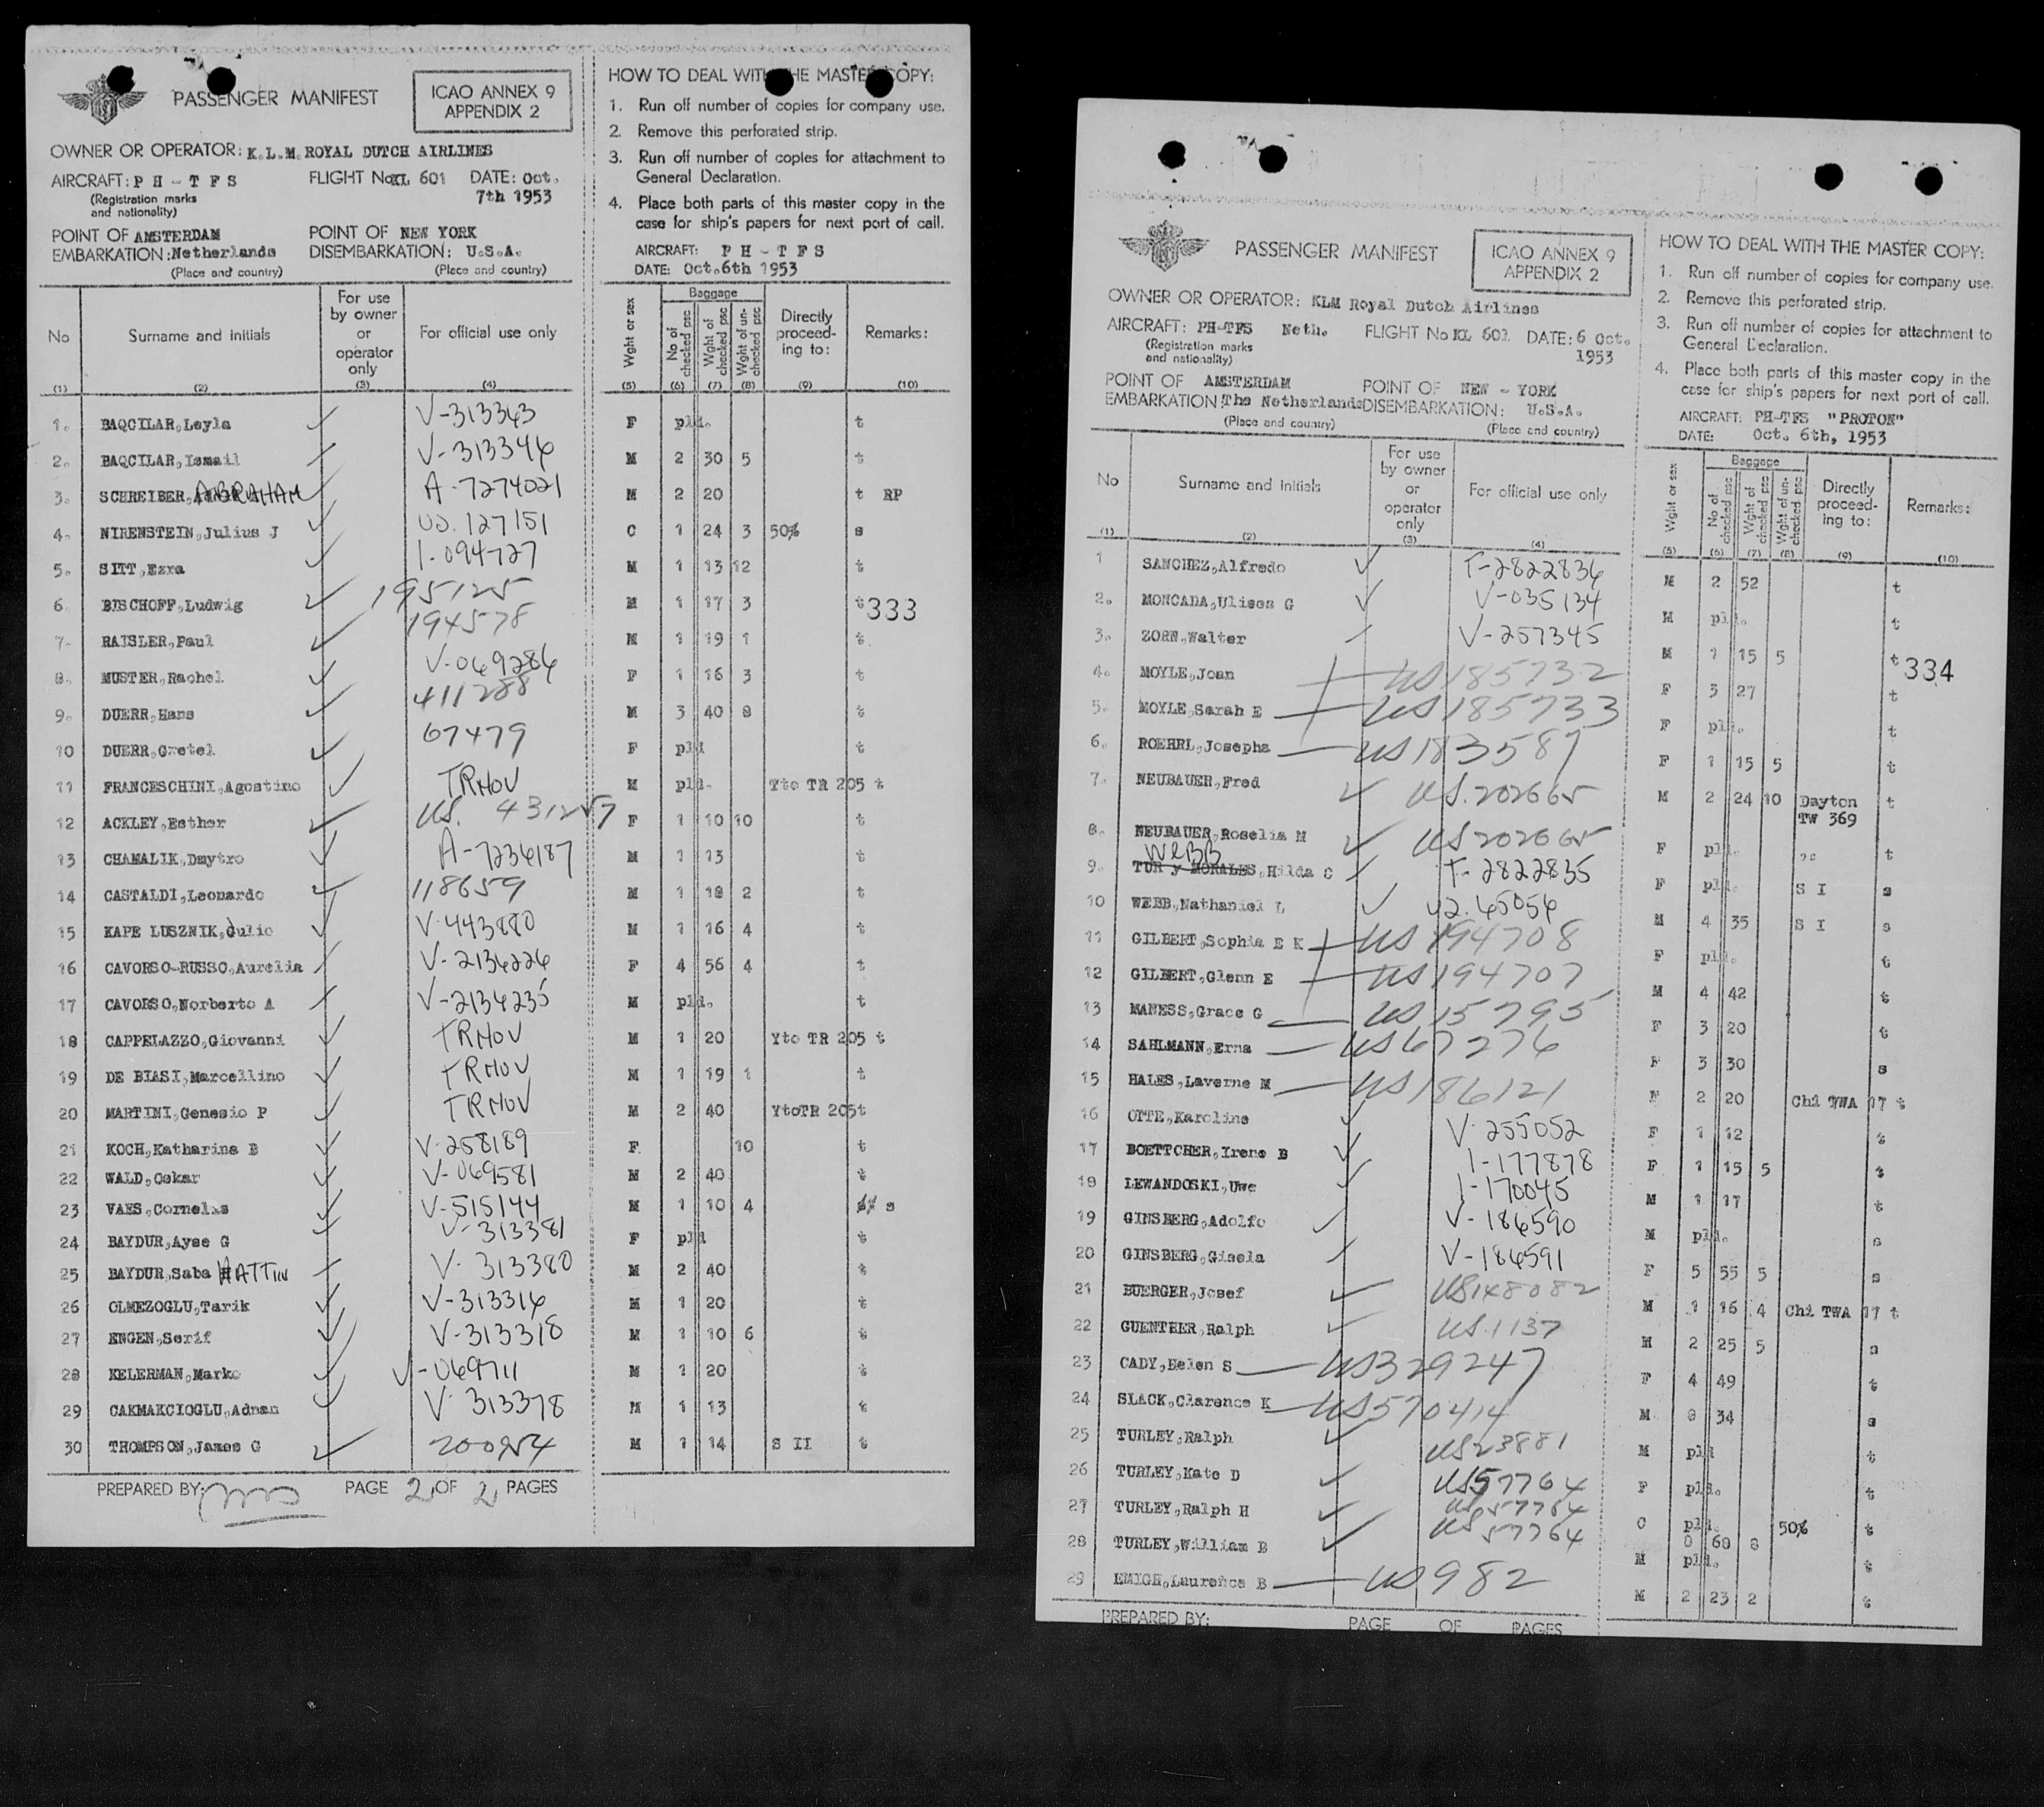 PASSENGER MANIFEST
ICAO ANNEX 9
APPENDIX 2
OWNER OR OPERATOR: K.L.M. ROYAL DUTCH AIRLINES
AIRCRAFT: P H - T F S FLIGHT No KL 601 DATE: Oct.
(Registration marks and nationality) 7th 1953
POINT OF AMSTERDAM POINT OF NEW YORK
EMBARKATION: Netherlands DISEMBARKATION: U.S.A.
(Place and country) (Place and country)
HOW TO DEAL WITH THE MASTER COPY:
1. Run off number of copies for company use.
2. Remove this perforated strip.
3. Run off number of copies for attachment to
General Declaration.
4. Place both parts of this master copy in the
case for ship's papers for next port of call.
AIRCRAFT: P H - T F S
DATE: Oct. 6th 1953
No Surname and initials For use by owner or operator only For official use only Wght or sex Baggage No of checked psc Wght of checked psc Wght of un-checked psc Directly proceed-ing to: Remarks:
(1) (2) (3) (4) (5) (6) (7) (8) (9) (10)
1. BAQCILAR, Leyla ✓ V-313343 F pld. t
2. BAQCILAR, Ismail ✓ V-313346 M 2 30 5 t
3. SCHREIBER, ABRAHAM ✓ A-7274021 M 2 20 t RP
4. NIRENSTEIN, Julius J ✓ US. 127151 C 1 24 3 50% s
5. SITT, Ezra ✓ I-094727 M 1 13 12 t
6. BISCHOFF, Ludwig ✓ 195125 M 1 17 3 t 333
7. RAISLER, Paul ✓ 194578 M 1 19 1 t.
8. MUSTER, Rachel ✓ V-069286 F 1 16 3 t
9. DUERR, Hans ✓ 411288 M 3 40 8 t
10 DUERR, Gretel ✓ 67479 F pld t
11 FRANCESCHINI, Agostino ✓ TRMOV M pld. Yto TR 205 t
12 ACKLEY, Esther ✓ US. 431257 F 1 10 10 t
13 CHAMALIK, Dmytro ✓ A-7236187 M 1 13 t
14 CASTALDI, Leonardo ✓ 118659 M 1 18 2 t
15 KAPE LUSZNIK, Julio ✓ V-443880 M 1 16 4 t
16 CAVORSO-RUSSO, Aurelia ✓ V-2136226 F 4 56 4 t
17 CAVORSO, Norberto A ✓ V-2136235 M pld. t
18 CAPPELAZZO, Giovanni ✓ TRMOV M 1 20 Yto TR 205 t
19 DE BIASI, Marcellino ✓ TRMOV M 1 19 1 t
20 MARTINI, Genesio P ✓ TRMOV M 2 40 YtoTR 205t
21 KOCH, Katharina B ✓ V-258189 F 10 t
22 WALD, Oskar ✓ V-069581 M 2 40 t
23 VAES, Cornelis ✓ V-515144 M 1 10 4 s
24 BAYDUR, Ayse G ✓ V-313381 F pld t
25 BAYDUR, Saba HATTIN ✓ V-313380 M 2 40 t
26 OLMEZOGLU, Tarik ✓ V-313316 M 1 20 t
27 ENGEN, Serif ✓ V-313318 M 1 10 6 t
28 KELERMAN, Marko ✓ V-069711 M 1 20 t
29 CAKMAKCIOGLU, Adnan ✓ V-313378 M 1 13 t
30 THOMPSON, James G ✓ 200954 M 1 14 S II t
PREPARED BY: PAGE 2 OF 2 PAGES
PASSENGER MANIFEST
ICAO ANNEX 9
APPENDIX 2
OWNER OR OPERATOR: KLM Royal Dutch Airlines
AIRCRAFT: PH-TFS Neth. FLIGHT No KL 601 DATE: 6 Oct.
(Registration marks and nationality) 1953
POINT OF AMSTERDAM POINT OF NEW - YORK
EMBARKATION: The Netherlands DISEMBARKATION: U.S.A.
(Place and country) (Place and country)
HOW TO DEAL WITH THE MASTER COPY:
1. Run off number of copies for company use.
2. Remove this perforated strip.
3. Run off number of copies for attachment to
General Declaration.
4. Place both parts of this master copy in the
case for ship's papers for next port of call.
AIRCRAFT: PH-TFS "PROTON"
DATE: Oct. 6th, 1953
No Surname and initials For use by owner or operator only For official use only Wght or sex Baggage No of checked psc Wght of checked psc Wght of un-checked psc Directly proceed-ing to: Remarks:
(1) (2) (3) (4) (5) (6) (7) (8) (9) (10)
1 SANCHEZ, Alfredo ✓ T-2822836 M 2 52 t
2. MONCADA, Ulises G ✓ V-035134 M pld. t
3. ZORN, Walter ✓ V-257345 M 1 15 5 t 334
4. MOYLE, Joan US185732 F 3 27 t
5. MOYLE, Sarah E US185733 F pld. t
6. ROEHRL, Josepha US183587 F 1 15 5 t
7. NEUBAUER, Fred ✓ US.202665 M 2 24 10 Dayton TW 369 t
8. NEUBAUER, Roselia M ✓ US202665 F pld. " t
WEBB
9. TUR y MORALES, Hilda C ✓ T-2822835 F pld. S I s
10 WEBB, Nathaniel L ✓ U2.45054 M 4 35 S I s
11 GILBERT, Sophia E K US194708 F pld. t
12 GILBERT, Glenn E US194707 M 4 42 t
13 MANESS, Grace G US15795 F 3 20 t
14 SAHLMANN, Erna US67276 F 3 30 s
15 HALES, Laverne M US186121 F 2 20 Chi TWA 17 t
16 OTTE, Karoline ✓ V-255052 F 1 12 t
17 BOETTCHER, Irene B ✓ I-177878 F 1 15 5 t
18 LEWANDOSKI, Uwe ✓ I-170045 M 1 17 t
19 GINSBERG, Adolfo ✓ V-186590 M pld. s
20 GINSBERG, Gisela ✓ V-186591 F 5 55 5 s
21 BUERGER, Josef ✓ US148082 M 1 16 4 Chi TWA 17 t
22 GUENTHER, Ralph ✓ US.1137 M 2 25 5 s
23 CADY, Helen S US329247 F 4 49 t
24 SLACK, Clarence K US570414 M 34 s
25 TURLEY, Ralph ✓ US23881 M pld t
26 TURLEY, Kate D ✓ US57764 F pld. t
27 TURLEY, Ralph H ✓ US57764 C pld. 50% t
28 TURLEY, William E ✓ US57764 M 60 8 pld. t
29 EMIGH, Laurence B US982 M 2 23 2 t
PREPARED BY: PAGE OF PAGES